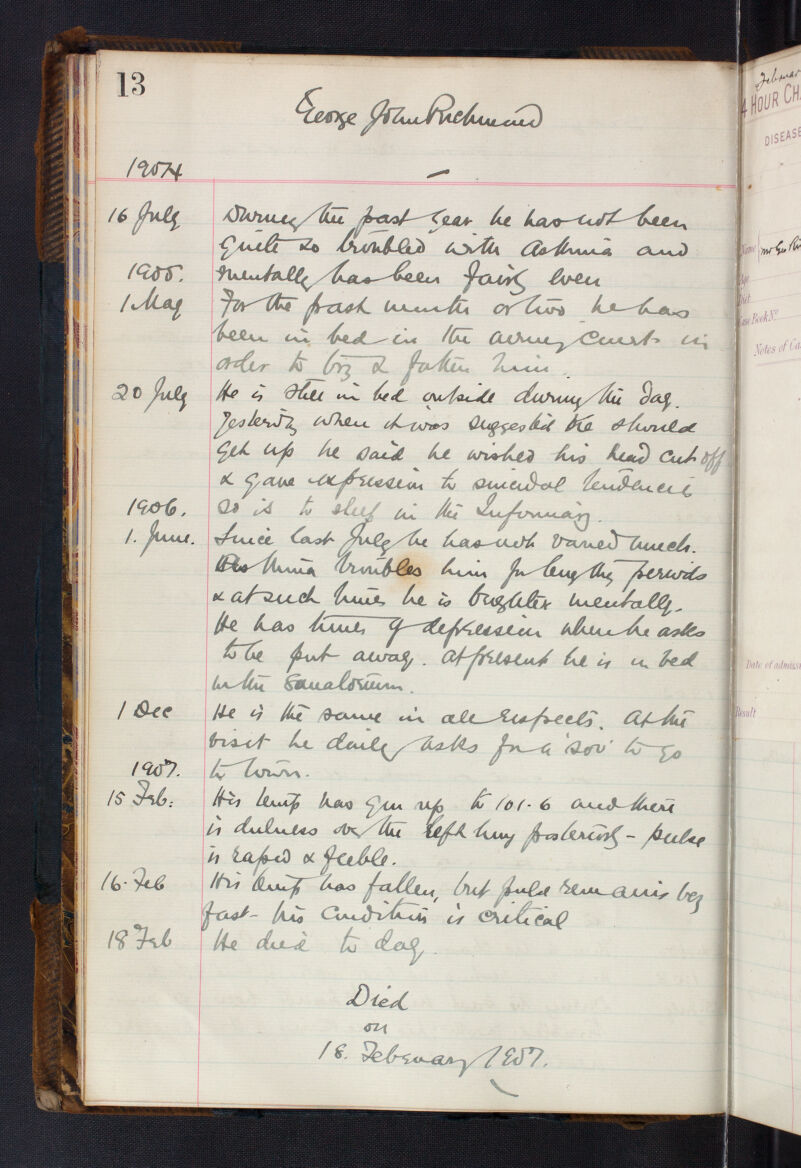 13
George John Richmond
1904
16 July During the past year he has not been
quite so troubled with Asthma and
1905. mentally has been fairly even
1 May For the past month or two he has
been in bed in the airing courts in
order to try & fatten him.
20 July He is still in bed outside during the day.
Yesterday when it was suggested he should
get up he said he wished his head cut off
& gave expression to suicidal tendencies
1906. so is to sleep in the Infirmary.
1. June. Since last July he has not varied much.
Asthma troubles him for lengthy periods
& at such times he is brighter mentally.
He has times of depression when he asks
to be put away. At present he is in bed
in the Sanatorium.
1 Dec He is the same in all respects. At the
visit he daily asks for a 'sov' to go
1907. to town.
15 Feb: His temp has gone up to 101.6 and there
is dulness over the left lung posteriorly - pulse
is rapid & feeble.
16. Feb His temp has fallen, but pulse remains very
fast - his condition is critical
18 Feb He died to day.
Died
on
18. February 1907.
4 HOUR CH
DISEASE
Name
Case Book No.
Notes of Ca
Date of admiss
Result